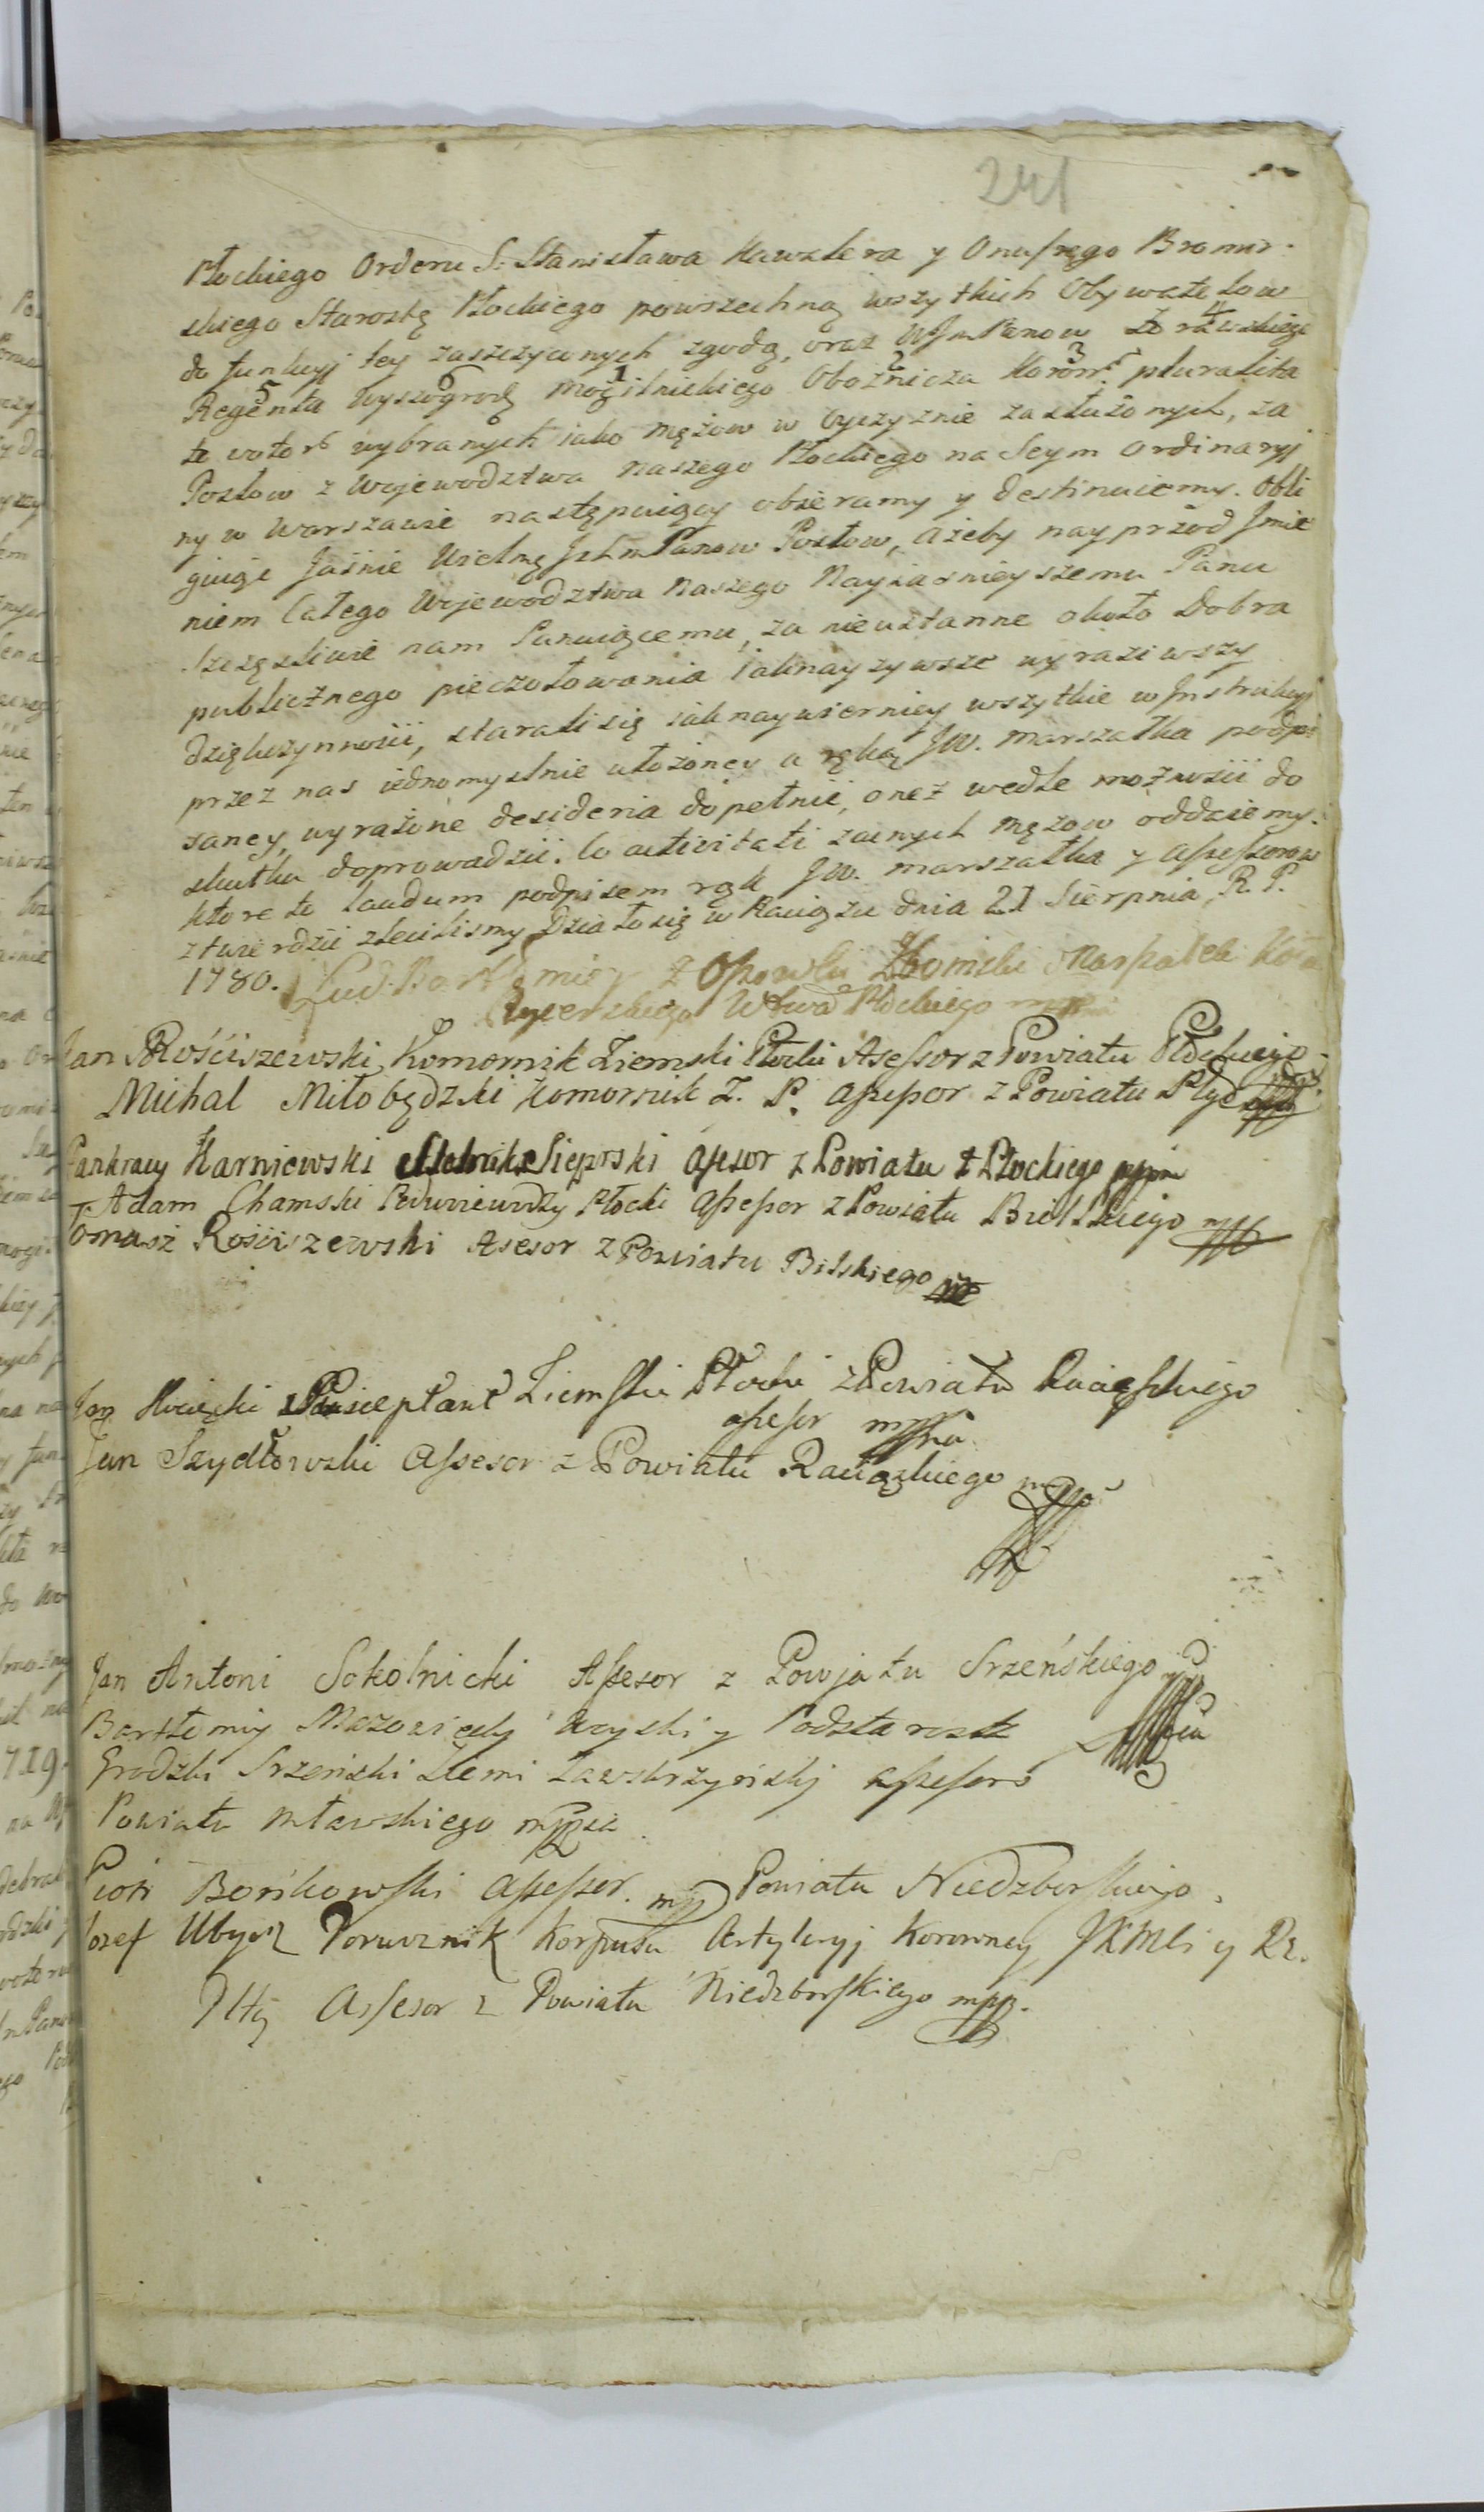 241
Płockiego Orderu S. Stanisława Kawalera y Onufrego Bromir-
skiego Starostę Płockiego powszechną wszytkich Obywatelow
do funkcyj tey zaszczyconych zgodą, oraz WJmPanow Żorawskiego
Regenta Wyszogrodz Mogilnickiego Oboźnicza Koron. pluralita
te votor wybranych iako Mężow w Oyczyznie zasłużonych, za
Posłow z Wojewodztwa Naszego Płockiego na Seym Ordinaryj
ny w Warszawie następuiący obieramy y destinuiemy. Obli
guiąc Jaśnie Wielmę Panow Posłow, ażeby nayprzod Jmie
niem Całego Wojewodztwa Naszego Nayiaśnieyszemu Panu
Szczęśliwie nam Panuiącemu, za nieustanne około Dobra
publicznego pieczołowania iaknayżywsze wyraziwszy
dziękczynności, starali się iaknaywierniey wszytkie w Jnstrukcyj
przez nas iednomyslnie ułożoney a ręką JW. Marszałka podpi
saney, wyrażone desideria dopełnić, onez wedle możności do
skutku doprowadzić. Co activitati zacnych Mężow oddaiemy.
ktore to Laudum podpisem rąk JW. Marszałka y Assessorow
ztwierdzić zleciliśmy Działo się w Raciążu dnia 21 Sierpnia, R. P.
1780. Z Zboinski Marszałek Koła
Rycerskiego Wtwa Płockiego mpp
Jan Rościszewski, Komornik Ziemski Płocki Asessor z Powiatu Płockiego
Michal Miłobędzki Komornik Z. P. Assessor z Powiatu
Pankracy Karniewski Sieprski Asesor z Powiatu Płockiego mppa
Adam Chamski Płocki Assessor z Powiatu Bielskiego mpp
Tomasz Rościszewski Asesor z Powiatu Bilskiego mp
Jan Ziemski Płocki z Powiatu Raciąskiego
assesor mppria
Jan Szydłowski Assesor z Powiatu Raciązkiego mpp
Jan Antoni Sokolnicki Assesor z Powjatu Srzeńskiego
Bartłomiy Woyski y Podstarosti
Grodzki Srzeński Ziemi Zawskrzyńskij Assessor
Powiatu Mławskiego mppia
Piotr Bońkowski Assessor. mp Powiatu Niedzborskiego.
Jozef Ubysz Porucznik Korpusu Artyleryj Koronney JKMCi y Rz.
Pltey Assesor z Powiatu Niedzborskiego mpp.